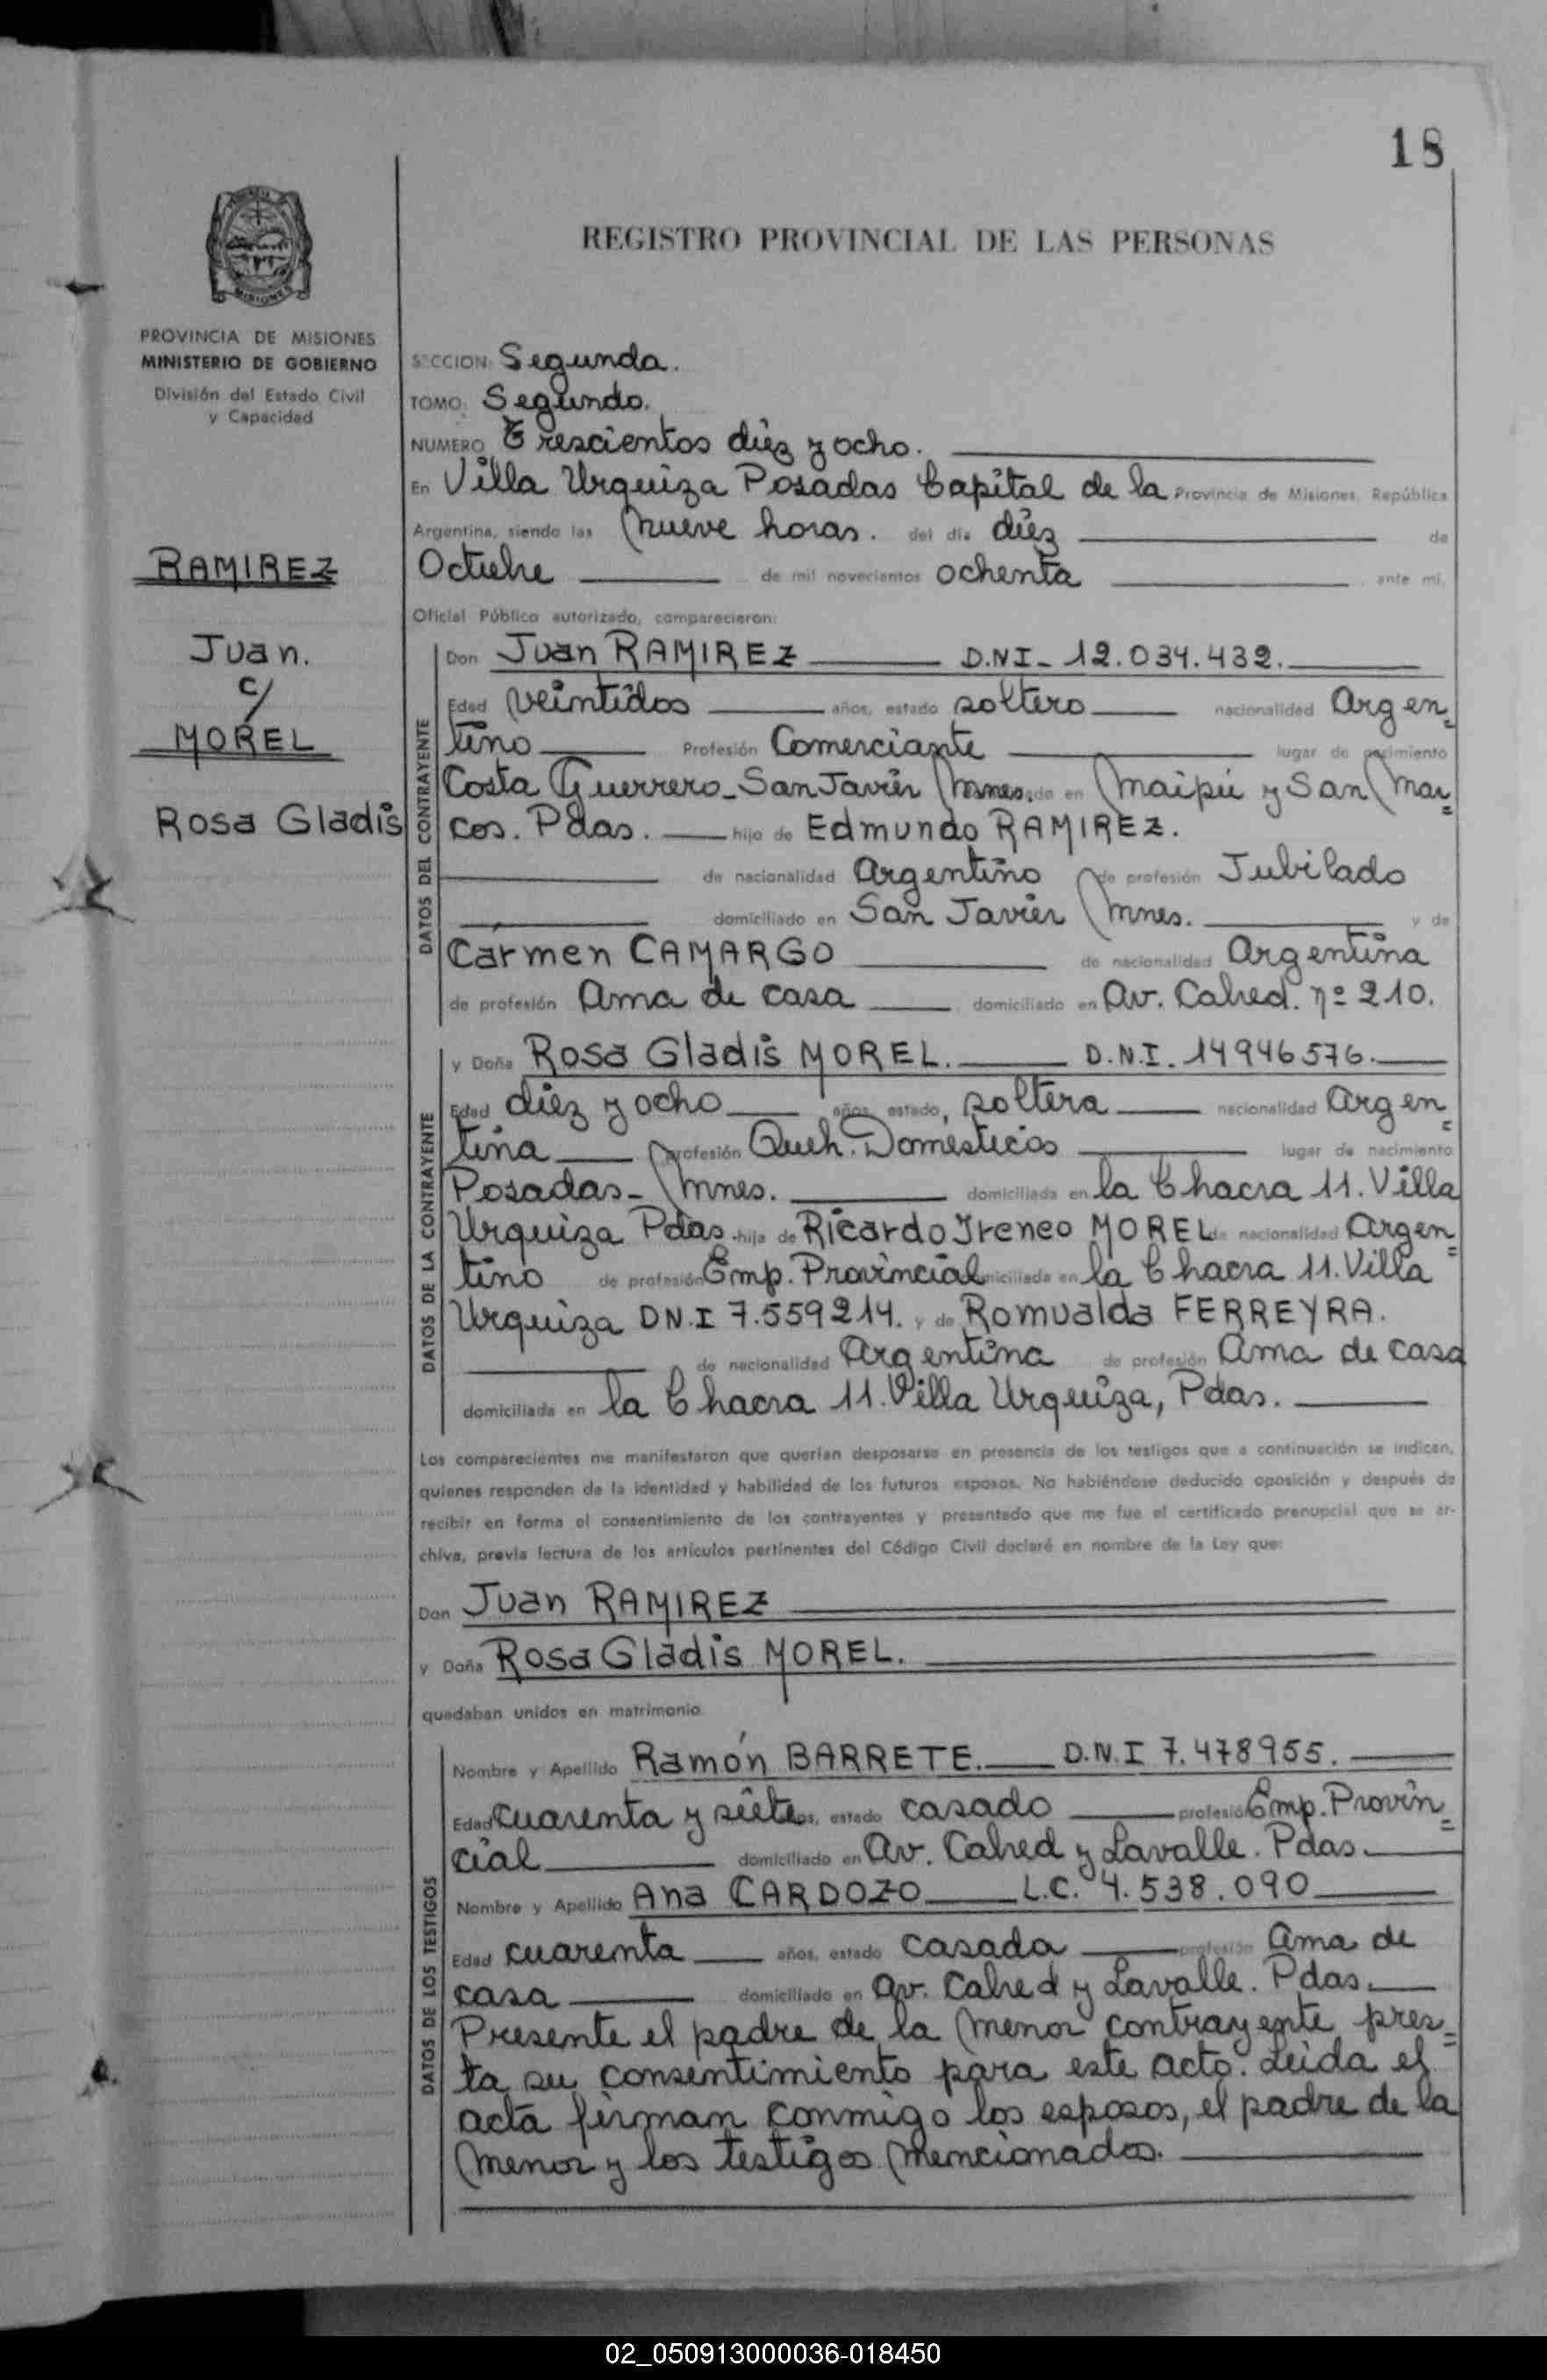 18
REGISTRO PROVINCIAL DE LAS PERSONAS
PROVINCIA DE MISIONES
MINISTERIO DE GOBIERNO
División del Estado Civil
y Capacidad
RAMIREZ
Juan.
c/
MOREL
Rosa Gladis
SECCION: Segunda.
TOMO: Segundo.
NUMERO Trescientos diéz y ocho.
En Villa Urquiza Posadas Capital de la Provincia de Misiones, República
Argentina, siendo las nueve horas. del día diéz de
Octubre de mil novecientos ochenta ante mi,
Oficial Público autorizado, comparecieron:
DATOS DEL CONTRAYENTE
Don Juan RAMIREZ D.N.I- 12.034.432.
Edad veintidos años, estado soltero nacionalidad Argen=
tino Profesión Comerciante lugar de nacimiento
Costa Guerrero-San Javier Mnes. en Maipú y San Mar=
cos. Pdas. hijo de Edmundo RAMIREZ.
de nacionalidad Argentino de profesión Jubilado
domiciliado en San Javier Mnes. y de
Carmen CAMARGO de nacionalidad Argentina
de profesión Ama de casa domiciliado en Av. Cabred. nº 210.
DATOS DE LA CONTRAYENTE
y Doña Rosa Gladis MOREL. D.N.I. 14946576.
Edad diéz y ocho años, estado, soltera nacionalidad Argen=
tina profesión Queh. Domésticos lugar de nacimiento
Posadas- Mnes. domiciliada en la Chacra 11. Villa
Urquiza Pdas. hija de Ricardo Ireneo MOREL de nacionalidad Argen=
tino de profesión Emp. Provincial domiciliada en la Chacra 11. Villa
Urquiza DN.I 7.559214. y de Romualda FERREYRA.
de nacionalidad Argentina de profesión Ama de casa
domiciliada en la Chacra 11. Villa Urquiza, Pdas.
Los comparecientes me manifestaron que querían desposarse en presencia de los testigos que a continuación se indican,
quienes responden de la identidad y habilidad de los futuros esposos. No habiéndose deducido oposición y después de
recibir en forma el consentimiento de los contrayentes y presentado que me fue el certificado prenupcial que se ar-
chiva, previa lectura de los artículos pertinentes del Código Civil declaré en nombre de la Ley que:
Don Juan RAMIREZ
y Doña Rosa Gladis MOREL.
quedaban unidos en matrimonio.
DATOS DE LOS TESTIGOS
Nombre y Apellido Ramón BARRETE. D.N.I 7.478955.
Edad cuarenta y siete años, estado casado profesión Emp. Provin=
cial domiciliado en Av. Cabred y Lavalle. Pdas.
Nombre y Apellido Ana CARDOZO L.C. 4.538.090
Edad cuarenta años, estado casada profesión Ama de
casa domiciliado en Av. Cabred y Lavalle. Pdas.
Presente el padre de la menor contrayente pres=
ta su consentimiento para este acto. Leida el
acta firman conmigo los esposos, el padre de la
menor y los testigos mencionados.
02_050913000036-018450